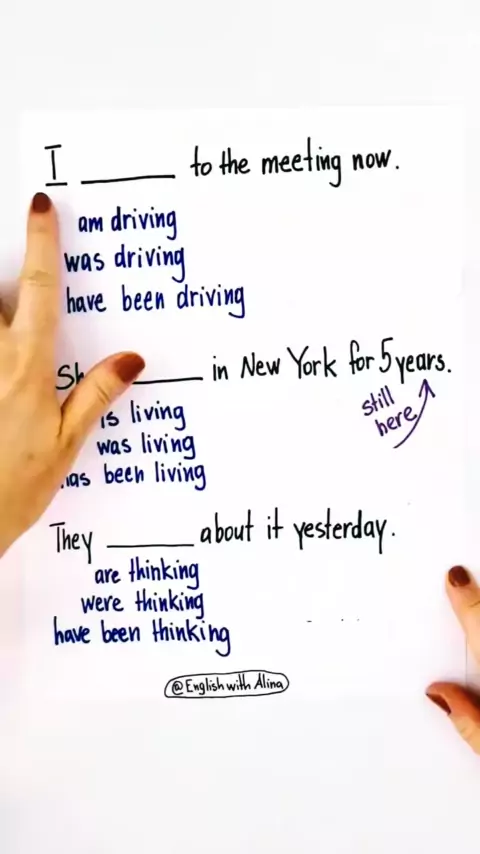 I ______ to the meeting now.
am driving
was driving
have been driving
Sh ______ in New York for 5 years.
still
here
is living
was living
has been living
They ______ about it yesterday.
are thinking
were thinking
have been thinking
@English with Alina